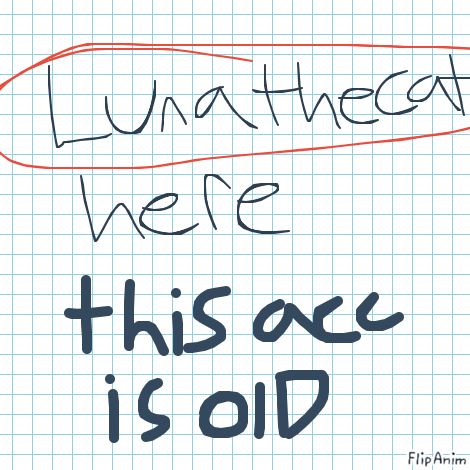 Lunathecat
here
this acc
is olD
FlipAnim